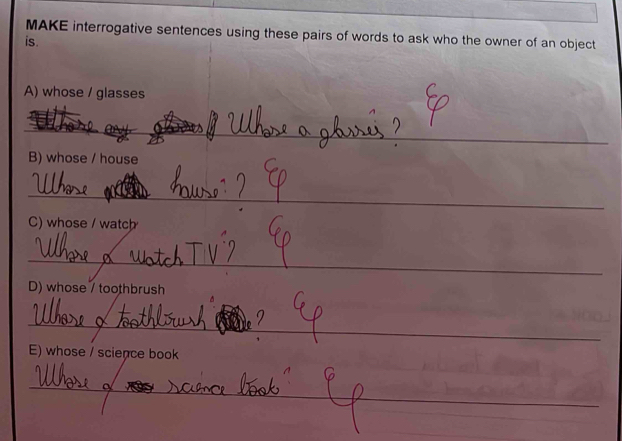 MAKE interrogative sentences using these pairs of words to ask who the owner of an object
is.
A) whose / glasses
Whose a glasses?
B) whose / house
Whose house?
C) whose / watch
Whose a watch TV?
D) whose / toothbrush
Whose a toothbrush?
E) whose / science book
Whose a science book